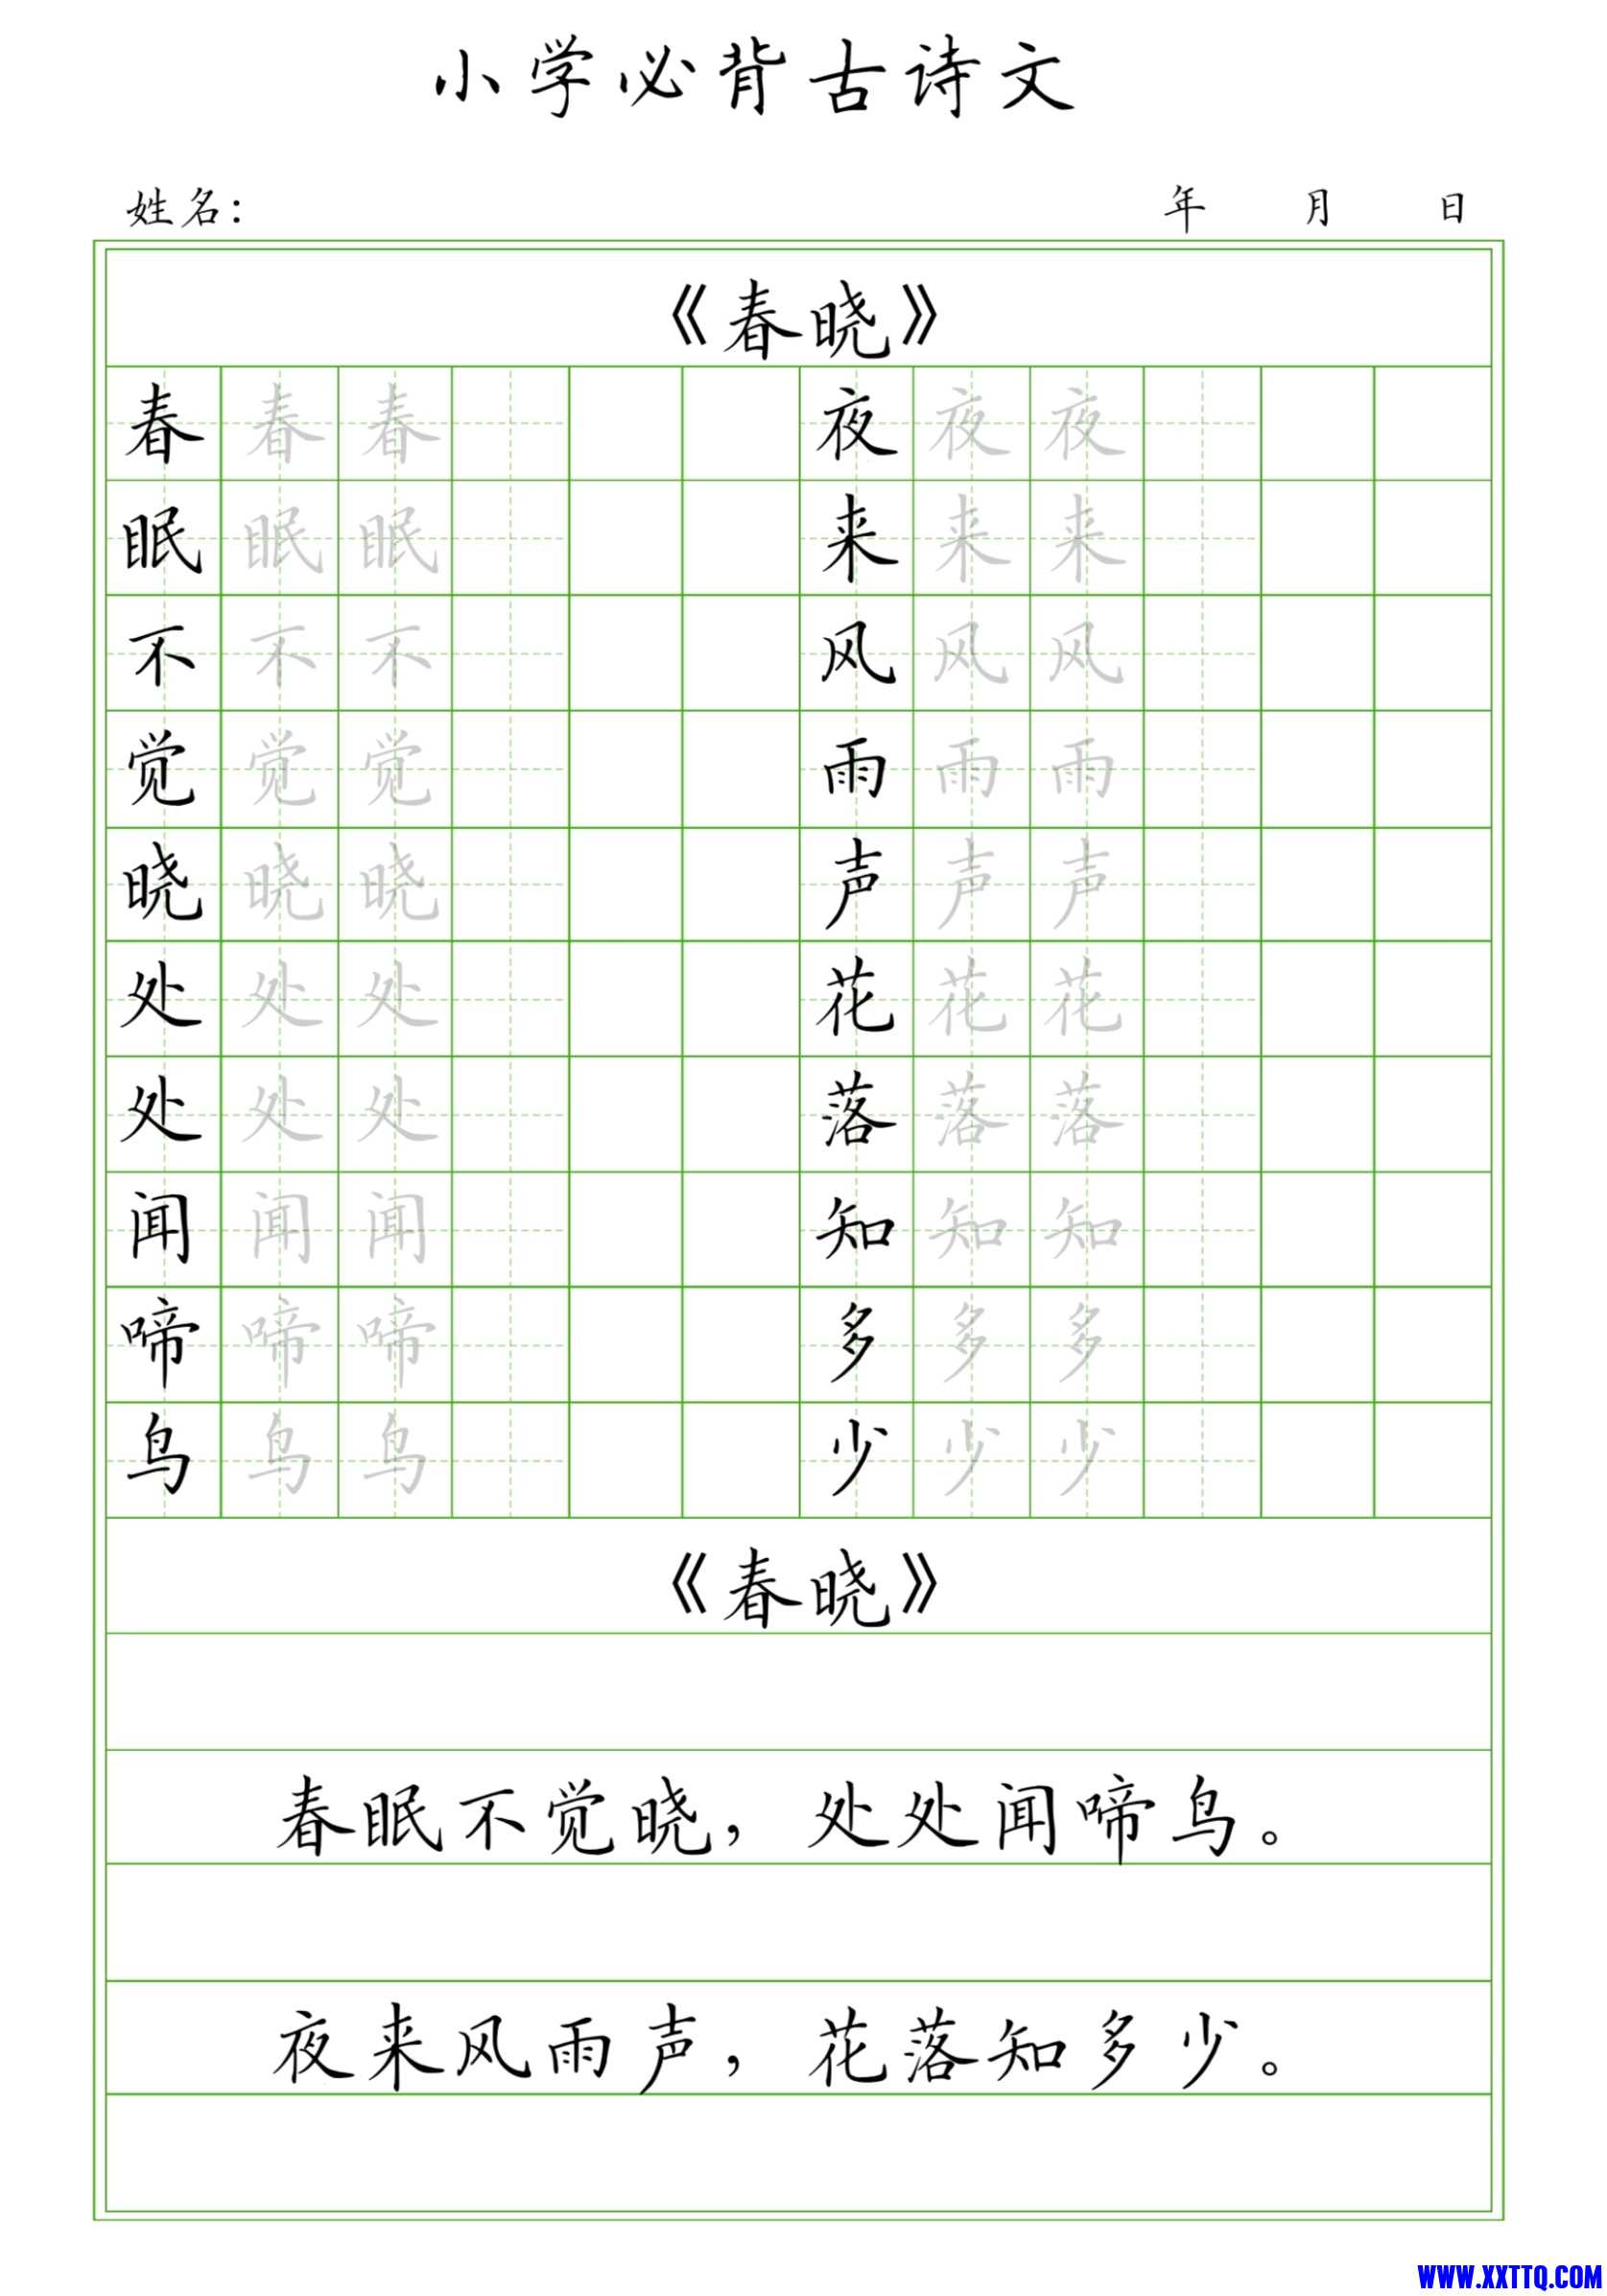 小学必背古诗文
姓名： 年 月 日
《春晓》
春 春 春 夜 夜 夜
眠 眠 眠 来 来 来
不 不 不 风 风 风
觉 觉 觉 雨 雨 雨
晓 晓 晓 声 声 声
处 处 处 花 花 花
处 处 处 落 落 落
闻 闻 闻 知 知 知
啼 啼 啼 多 多 多
鸟 鸟 鸟 少 少 少
《春晓》
春眠不觉晓，处处闻啼鸟。
夜来风雨声，花落知多少。
WWW.XXTTQ.COM